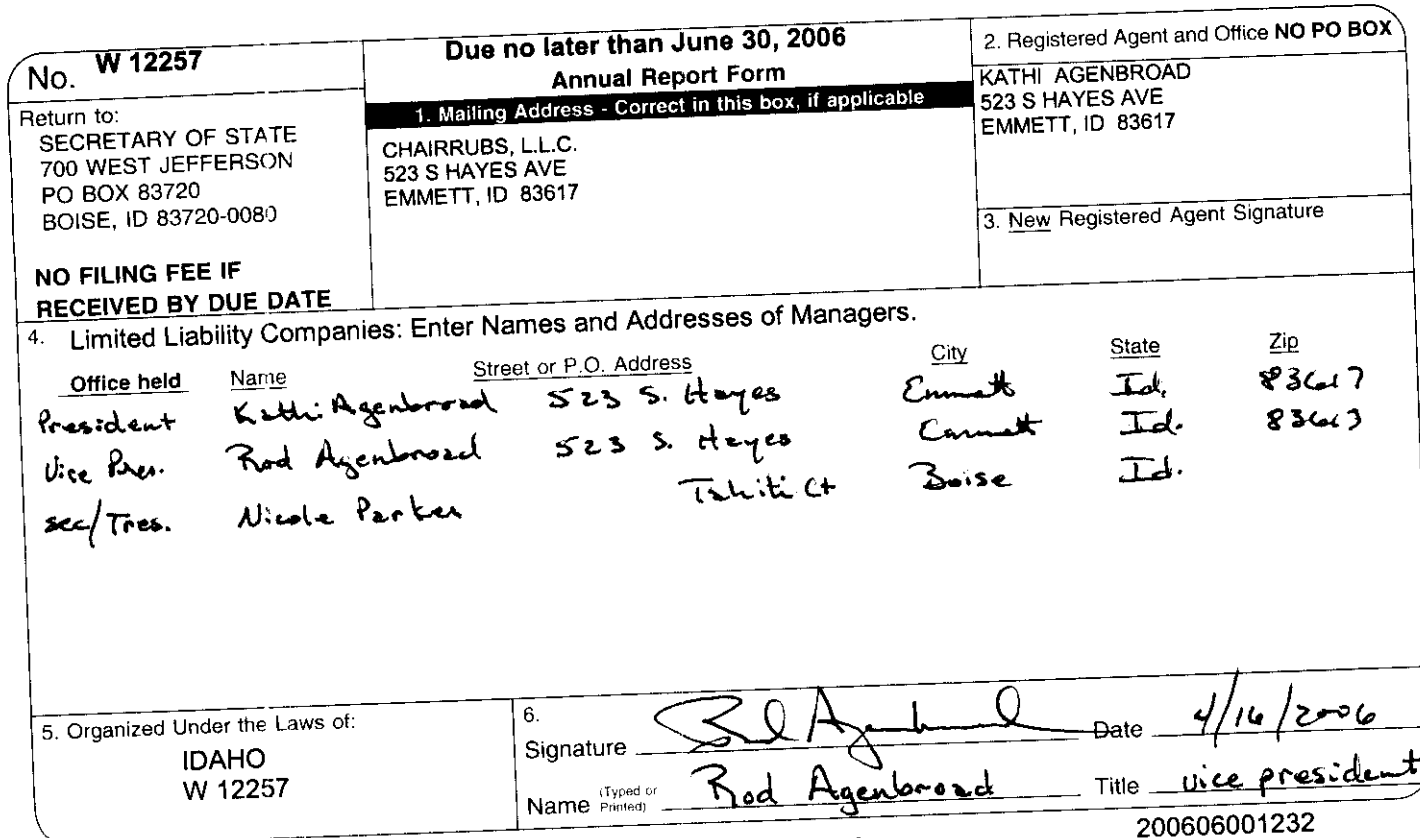 No. W 12257
Return to:
SECRETARY OF STATE
700 WEST JEFFERSON
PO BOX 83720
BOISE, ID 83720-0080
NO FILING FEE IF
RECEIVED BY DUE DATE
Due no later than June 30, 2006
Annual Report Form
1. Mailing Address - Correct in this box, if applicable
CHAIRRUBS, L.L.C.
523 S HAYES AVE
EMMETT, ID 83617
2. Registered Agent and Office NO PO BOX
KATHI AGENBROAD
523 S HAYES AVE
EMMETT, ID 83617
3. New Registered Agent Signature
4. Limited Liability Companies: Enter Names and Addresses of Managers.
Office held Name Street or P.O. Address City State Zip
President Kathi Agenbroad 523 S. Hayes Emmett Id. 83617
Vice Pres. Rod Agenbroad 523 S. Hayes Emmett Id.
Sec/Tres. Nicole Parker Tahiti Ct Boise Id.
5. Organized Under the Laws of:
IDAHO
W 12257
6.
Signature Rod Agenbroad Date 4/16/2006
Name (Typed or Printed) Rod Agenbroad Title vice president
200606001232